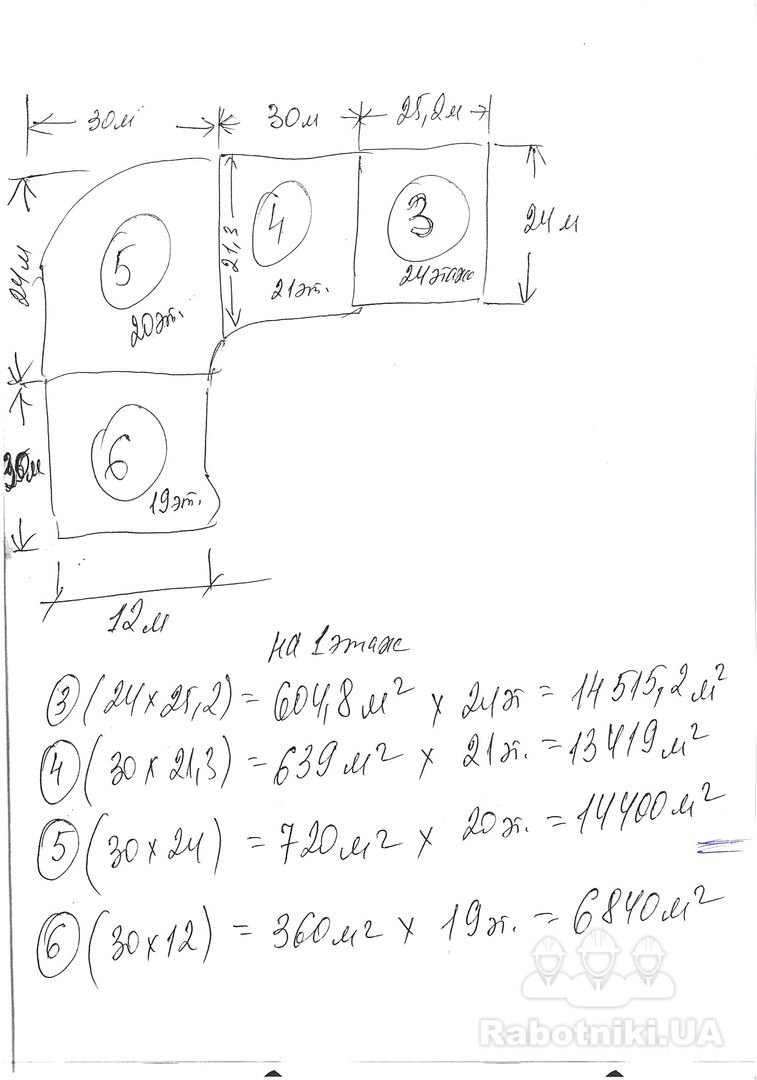 30м 30м 25,2м
24м
5
20эт.
21,3
4
21эт.
3
24этаж
24м
30м
6
19эт.
12м
на 1 этаж
3 (24 x 25,2) = 604,8 м² x 24э = 14515,2 м²
4 (30 x 21,3) = 639 м² x 21э. = 13419 м²
5 (30 x 24) = 720 м² x 20э. = 14400 м²
6 (30 x 12) = 360 м² x 19э. = 6840 м²
Rabotniki.UA